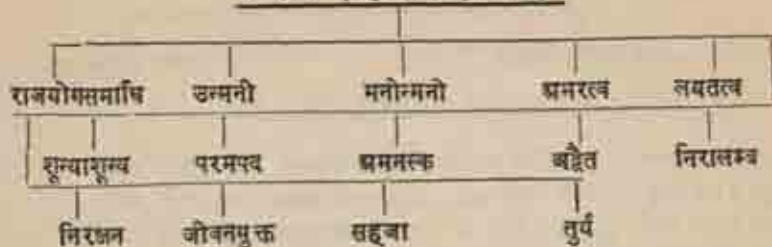 राजयोगसमाधि उन्मनी मनोन्मनो अमरत्व लयतत्व
शून्याशून्य परमपद अमनस्क अद्वैत निरालम्ब
निरञ्जन जीवनमुक्त सहजा तुर्य